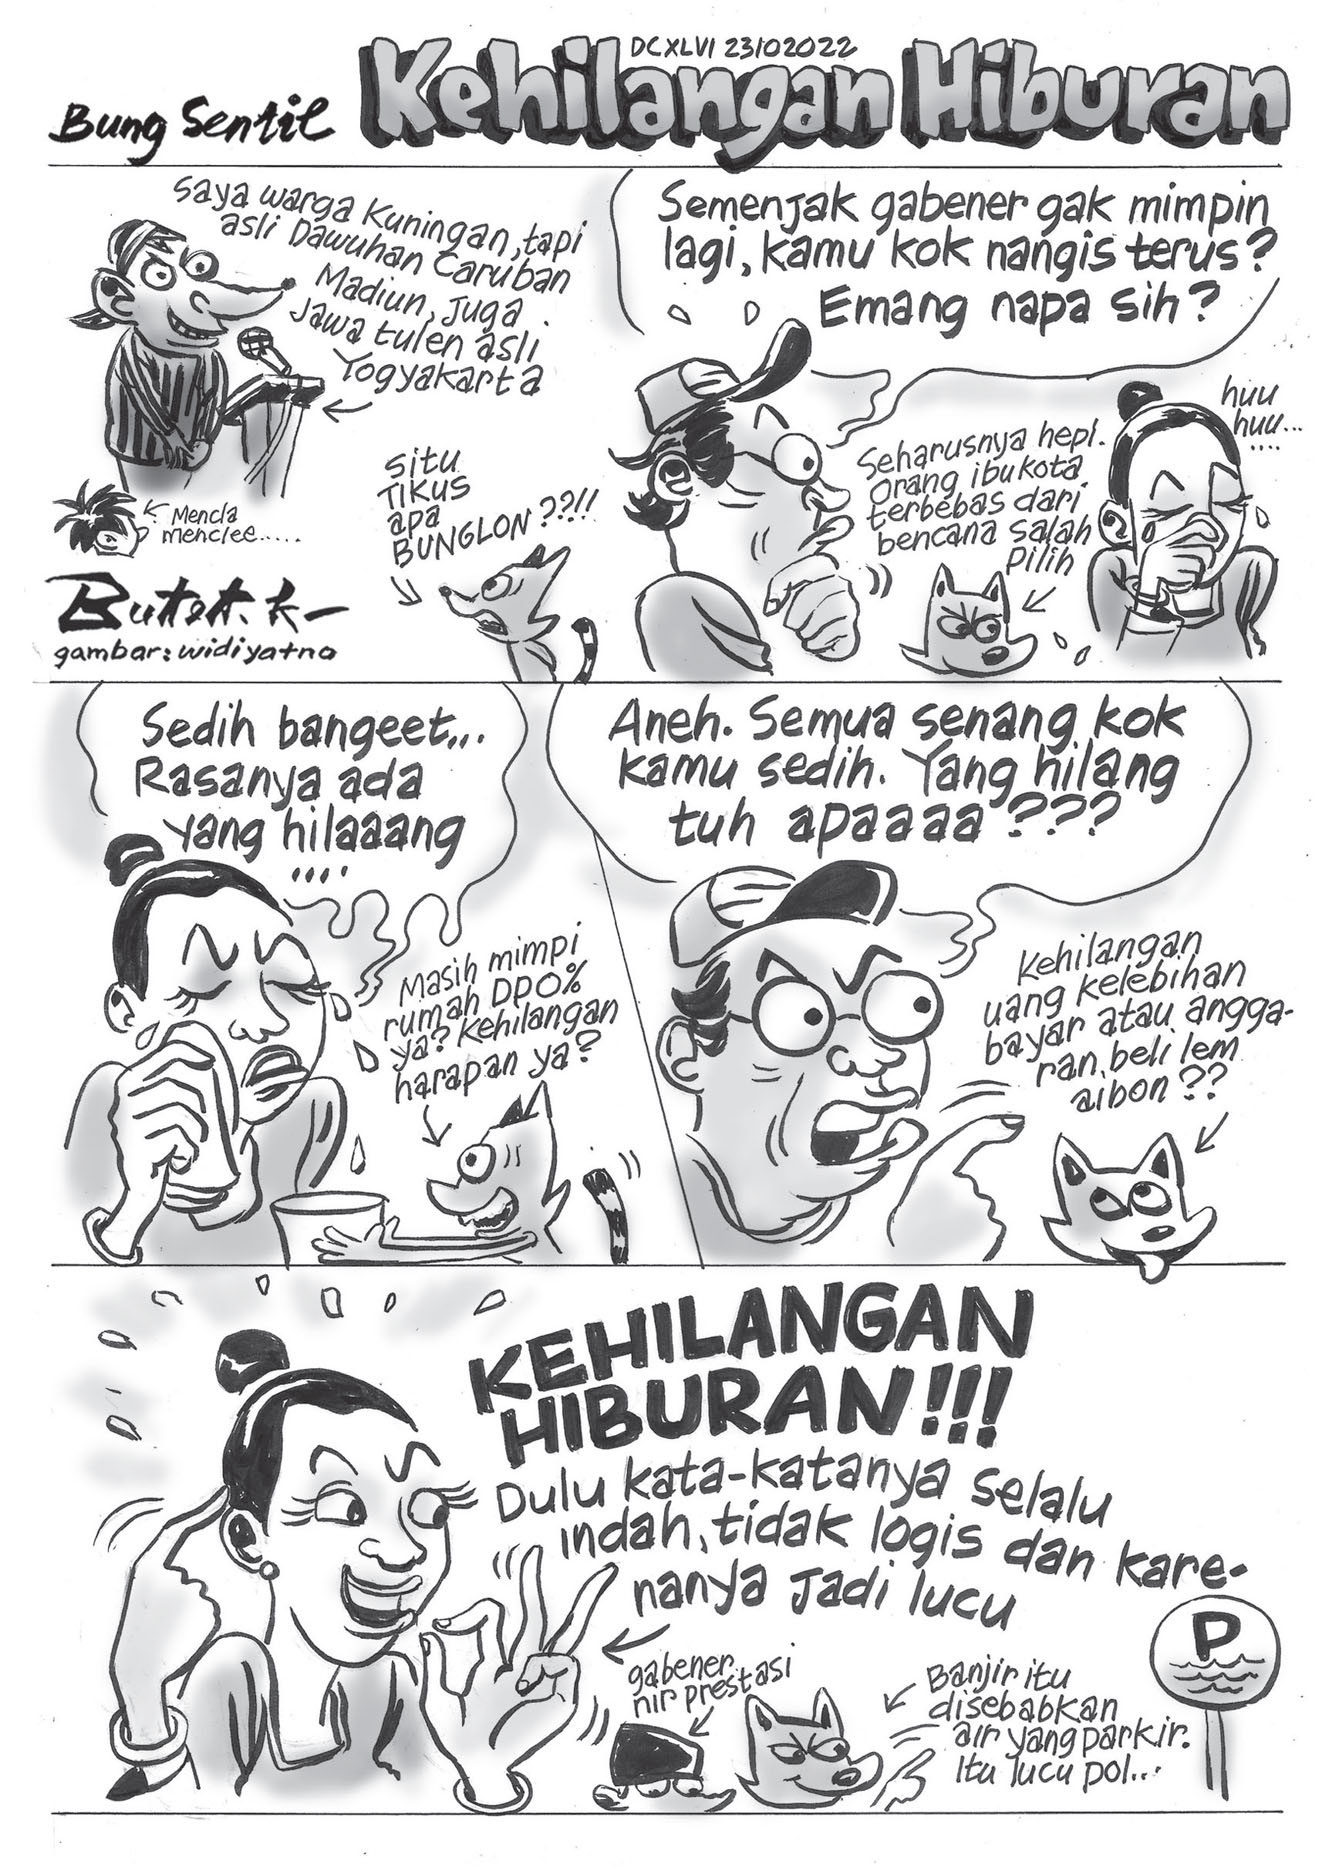 DCXLVI 23102022
Bung Sentil
Kehilangan Hiburan
Saya warga Kuningan, tapi
asli Dawuhan Caruban
Madiun, juga
Jawa tulen asli
Yogyakarta
Mencla
menclee.....
Situ
TIKUS
apa
BUNGLON??!!
Butet. k-
gambar: widiyatno
Semenjak gabener gak mimpin
lagi, kamu kok nangis terus?
Emang napa sih?
huu
huu...
....
Seharusnya hepi.
Orang ibukota
terbebas dari
bencana salah
pilih
Sedih bangeet...
Rasanya ada
yang hilaaang
....
Masih mimpi
rumah DPO%
ya? Kehilangan
harapan ya?
Aneh. Semua senang kok
kamu sedih. Yang hilang
tuh apaaaa???
Kehilangan
uang kelebihan
bayar atau angga-
ran beli lem
aibon??
KEHILANGAN
HIBURAN!!!
Dulu kata-katanya selalu
indah, tidak logis dan kare-
nanya jadi lucu
gabener
nir prestasi
Banjir itu
disebabkan
air yang parkir.
Itu lucu pol...
P